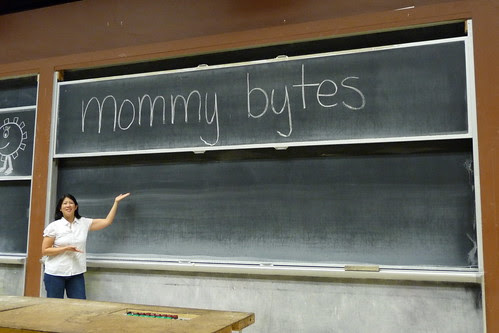 mommy bytes